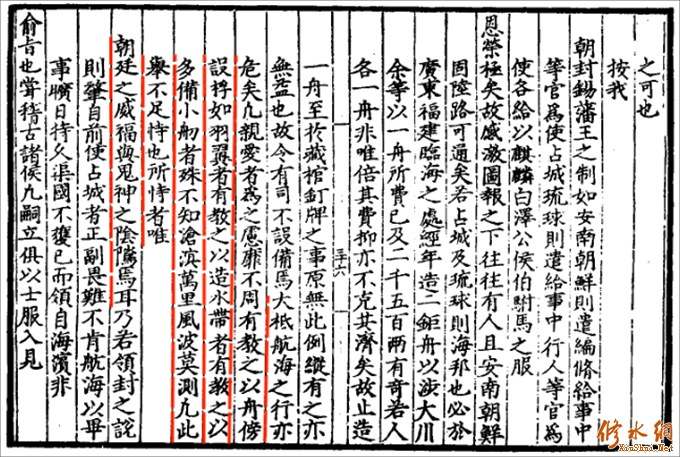 之可也
按我
朝封錫藩王之制如安南朝鮮則遣編脩給事中
等官為使占城琉球則遣給事中行人等官為
使各給以麒麟白澤公侯伯駙馬之服
恩榮極矣故感激圖報之下往往有人且安南朝鮮
固陸路可通矣若占城及琉球則海邦也必於
廣東福建臨海之處經年造二鉅舟以涉大川
余等以一舟所費已及二千五百兩有奇若人
各一舟非唯倍其費抑亦不克其濟矣故止造
三十六
一舟至於藏棺釘牌之事原無此例縱有之亦
無益也故今有司不設備焉大抵航海之行亦
危矣凡親愛者為之慮靡不周有教之以舟傍
設桴如羽翼者有教之以造水帶者有教之以
多備小舠者殊不知滄溟萬里風波莫測凡此
舉不足恃也所恃者唯
朝廷之威福與鬼神之陰騭焉耳乃若領封之說
則肇自前使占城者正副畏難不肯航海以畢
事曠日持久渠國不獲已而領自海濱非
俞旨也嘗稽古諸侯凡嗣立俱以士服入見
修水網
XiuShui.Net